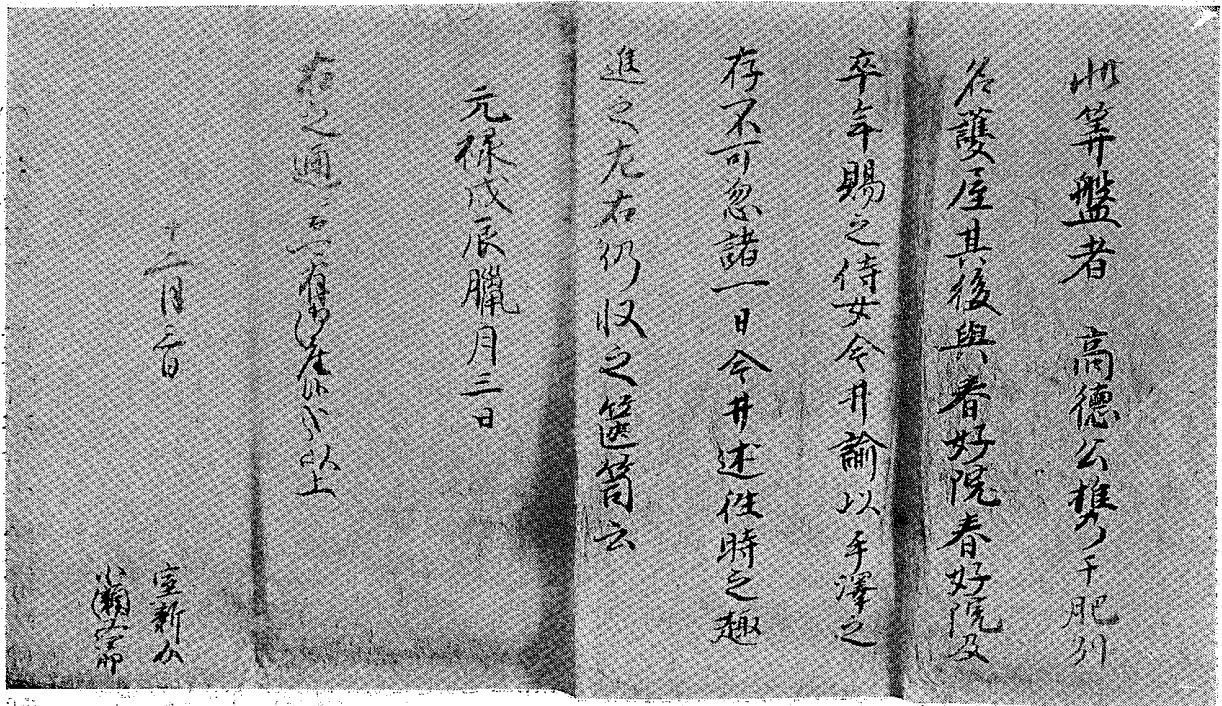 此筭盤者　高徳公携于肥州
名護屋其後與春好院春好院及
卒年賜之侍女今井諭以手澤之
存不可忽諸一日今井述往時之趣
進之左右仍収之篋笥云
元禄戊辰臘月三日
右之通ニ而御座候以上
十二月三日
室新助